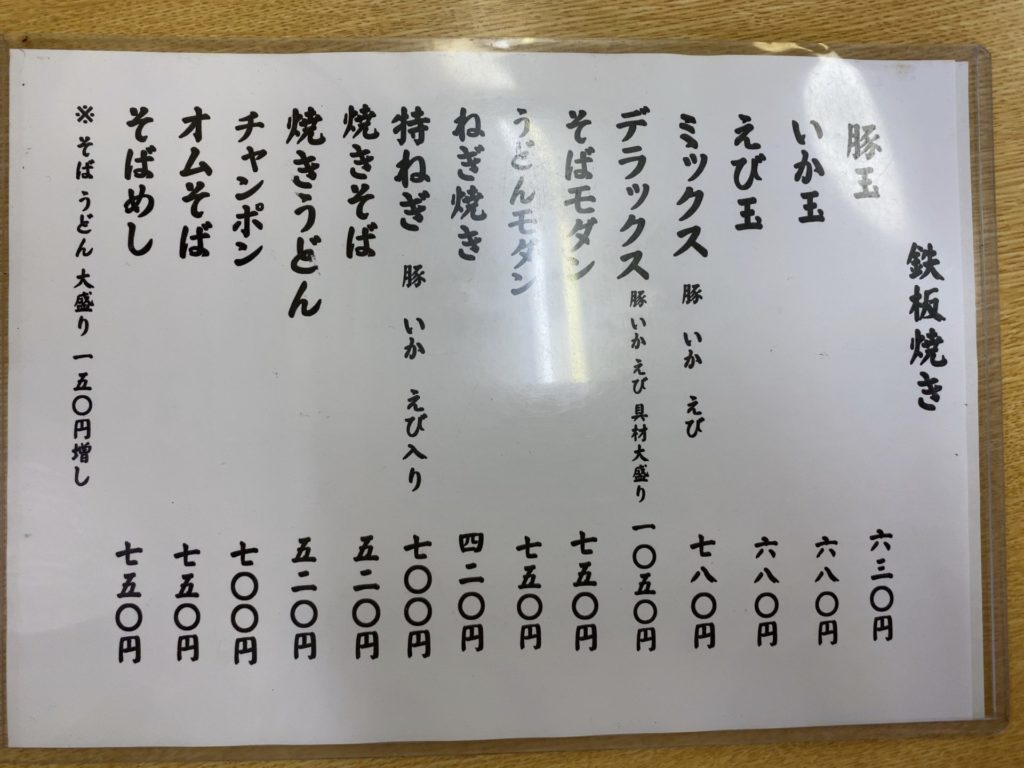 鉄板焼き
豚玉 六三〇円
いか玉 六八〇円
えび玉 六八〇円
ミックス 豚 いか えび 七八〇円
デラックス 豚 いか えび 具材大盛り 一〇五〇円
そばモダン 七五〇円
うどんモダン 七五〇円
ねぎ焼き 四二〇円
特ねぎ 豚 いか えび入り 七〇〇円
焼きそば 五二〇円
焼きうどん 五二〇円
チャンポン 七〇〇円
オムそば 七五〇円
そばめし 七五〇円
※ そば うどん 大盛り 一五〇円増し